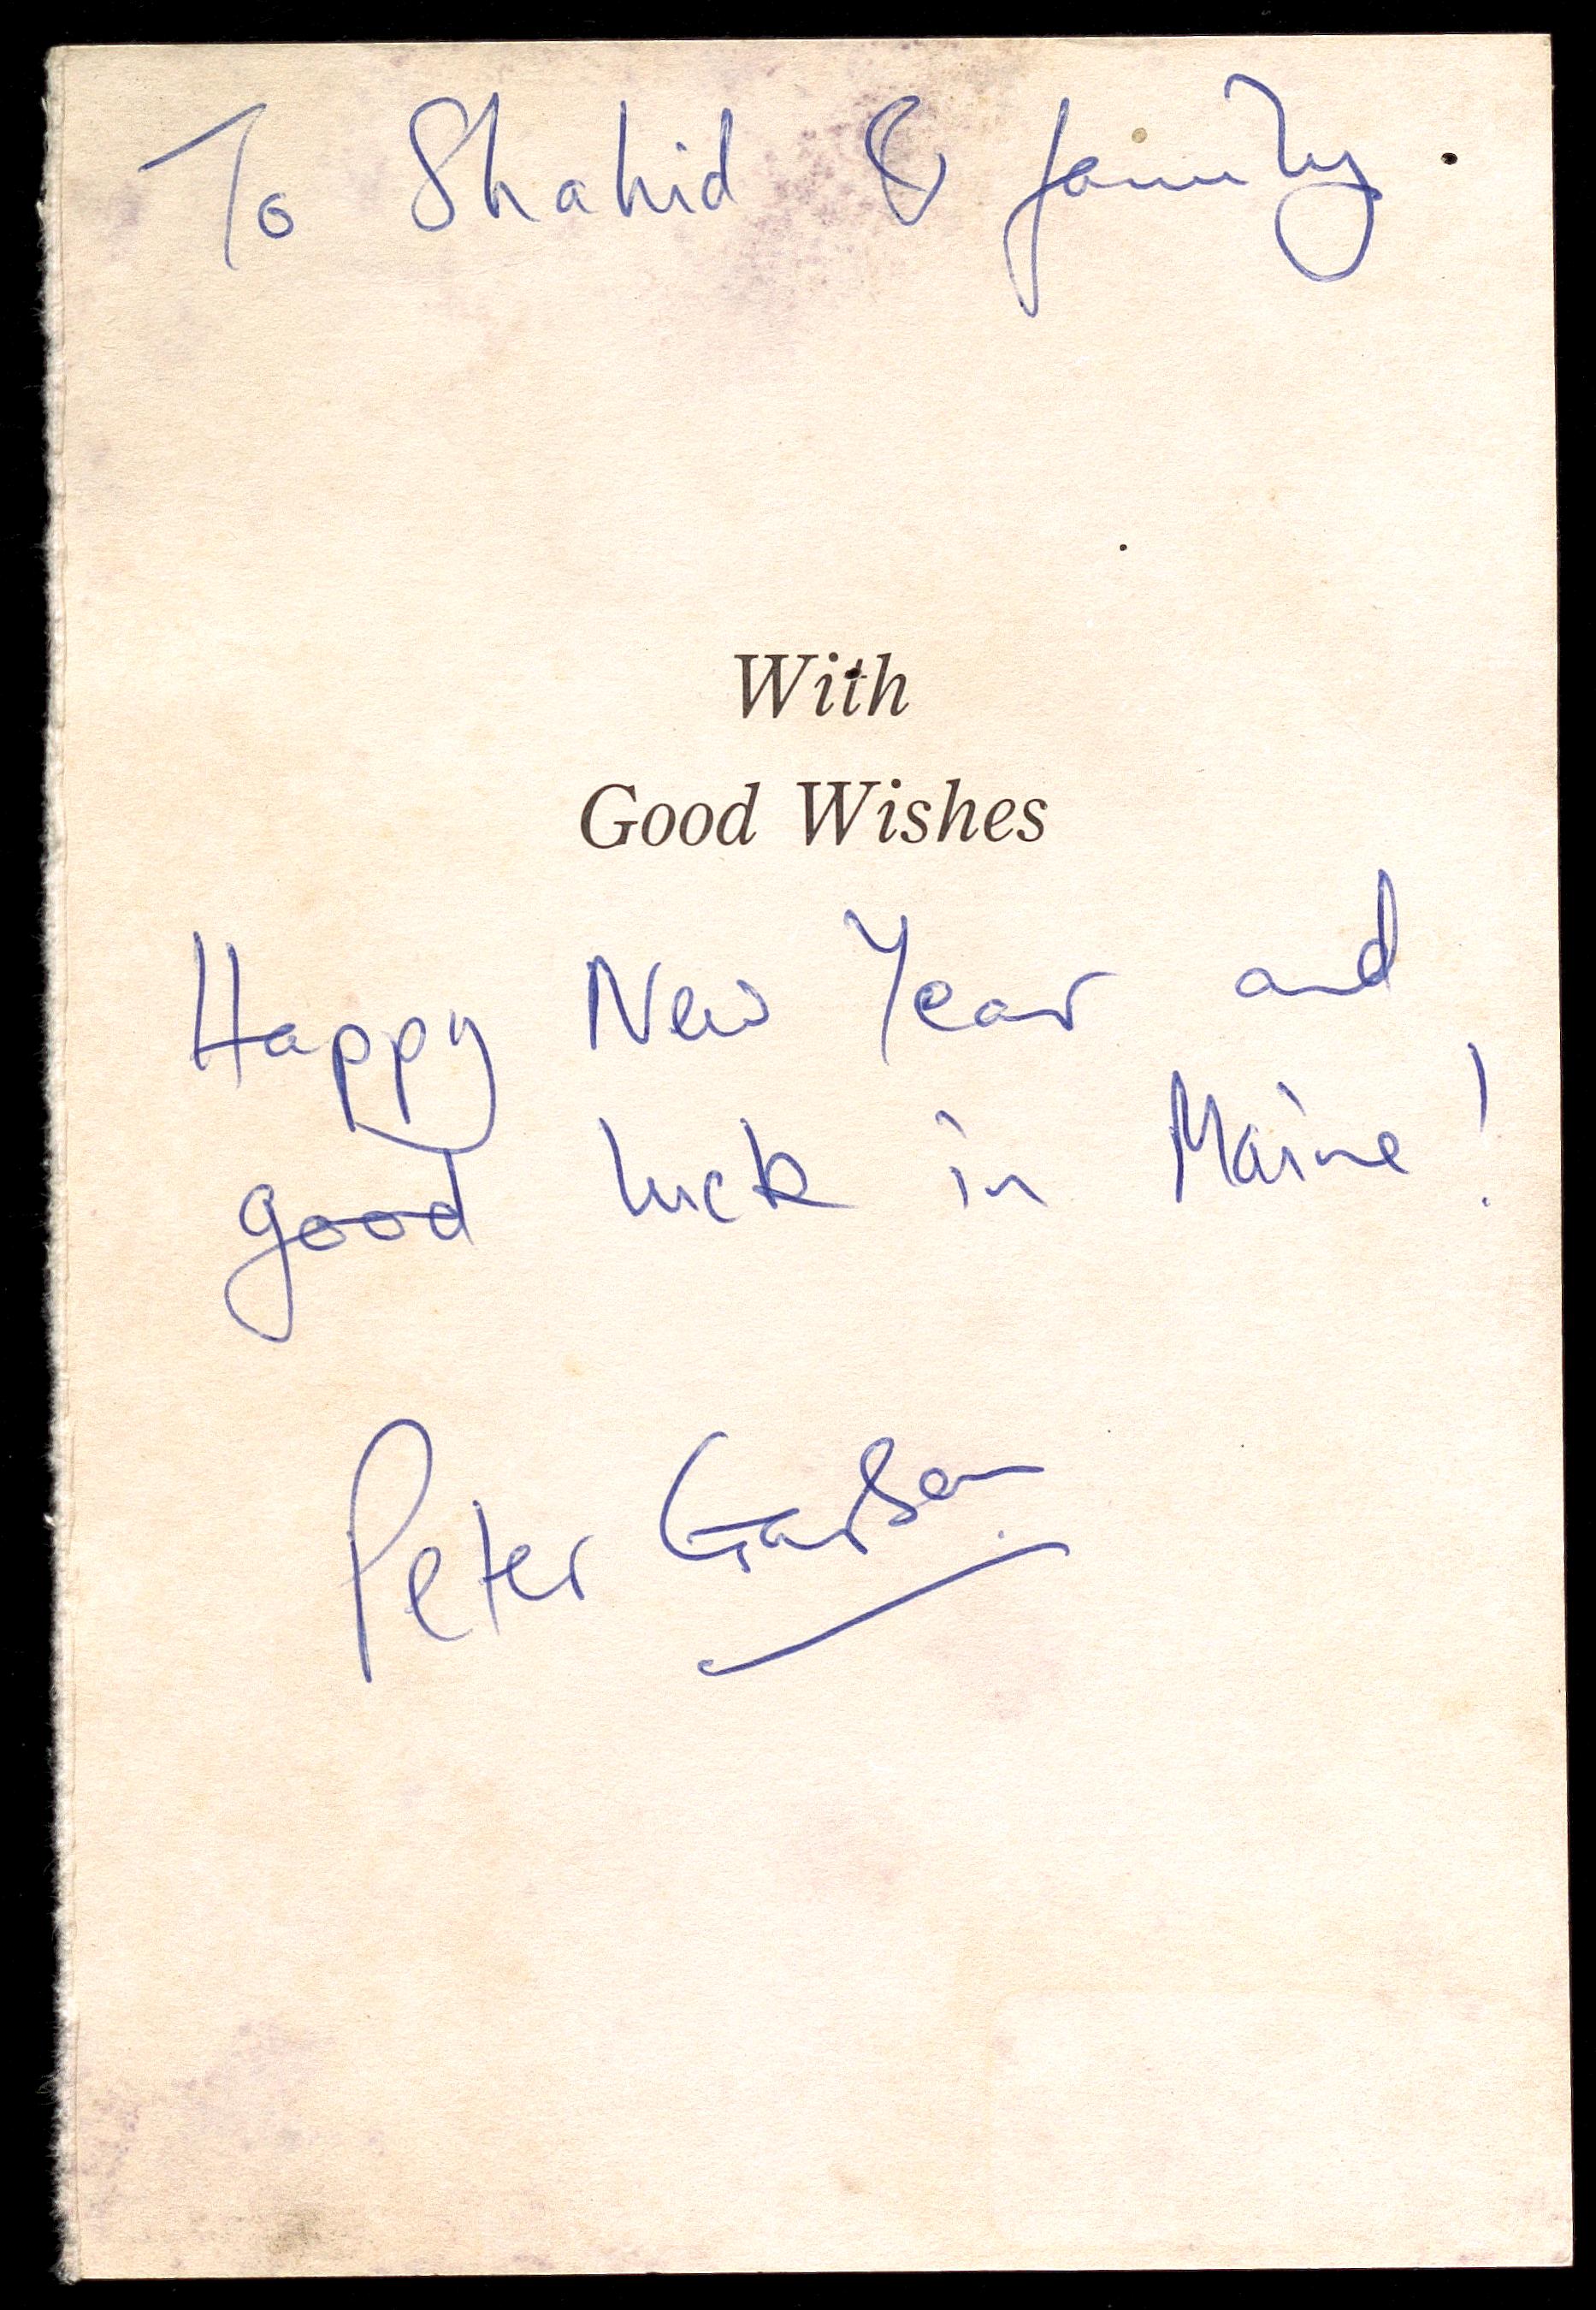 To Shahid & family.
With
Good Wishes
Happy New Year and
good luck in Maine!
Peter